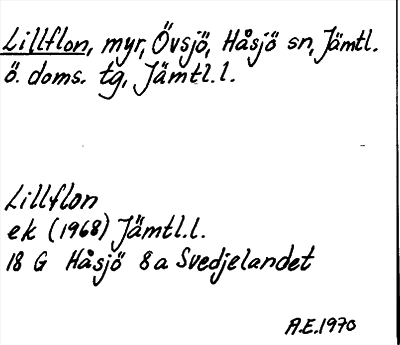 Lillflon, myr, Övsjö, Håsjö sn, Jämtl.
ö. doms. tg, Jämtl. l.
Lillflon
ek (1968) Jämtl.l.
18 G Håsjö 8a Svedjelandet
A.E.1970